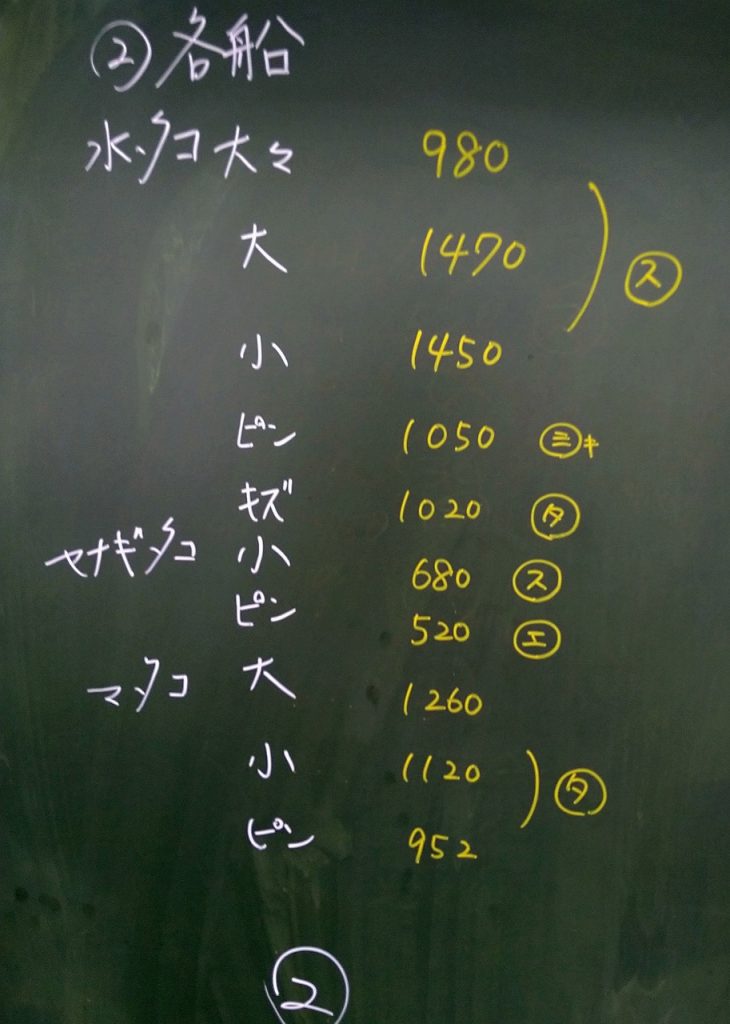 ②各船
水タコ 大々 980
大 1470 ㋜
小 1450
ピン 1050 ㋯キ
キズ 1020 ㋟
ヤナギタコ 小 680 ㋜
ピン 520 ㋓
マタコ 大 1260
小 1120 ㋟
ピン 952
②